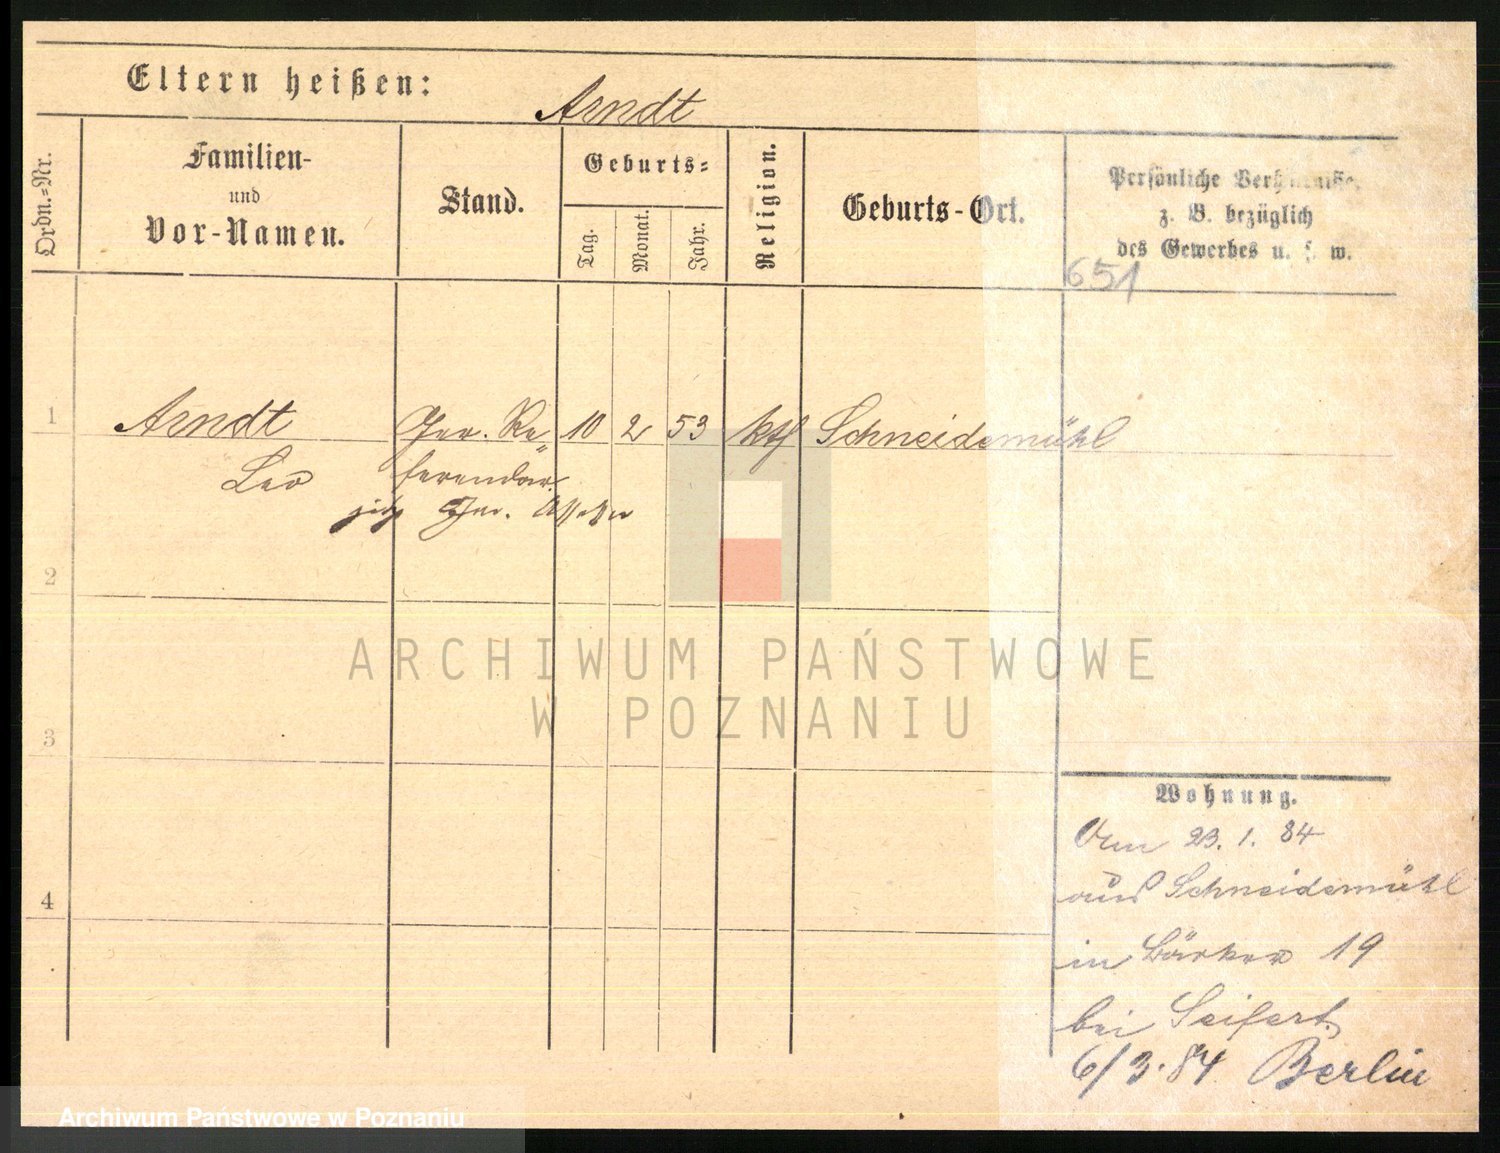 Eltern heißen:
Arndt
Ordn.=Nr.
Familien-
und
Vor-Namen.
Stand.
Geburts=
Tag.
Monat.
Jahr.
Religion.
Geburts-Ort.
Persönliche Verhältnisse,
z. B. bezüglich
des Gewerbes u. s. w.
651
1 Arndt Ger. Re= 10 2 53 kth Schneidemühl
Leo ferendar.
jetzt Ger. Assessor
2
3
4
Wohnung.
Vom 23. 1. 84
aus Schneidemühl
in Bäcker 19
bei Seifert.
6/3.84 Berlin
ARCHIWUM PAŃSTWOWE
W POZNANIU
Archiwum Państwowe w Poznaniu